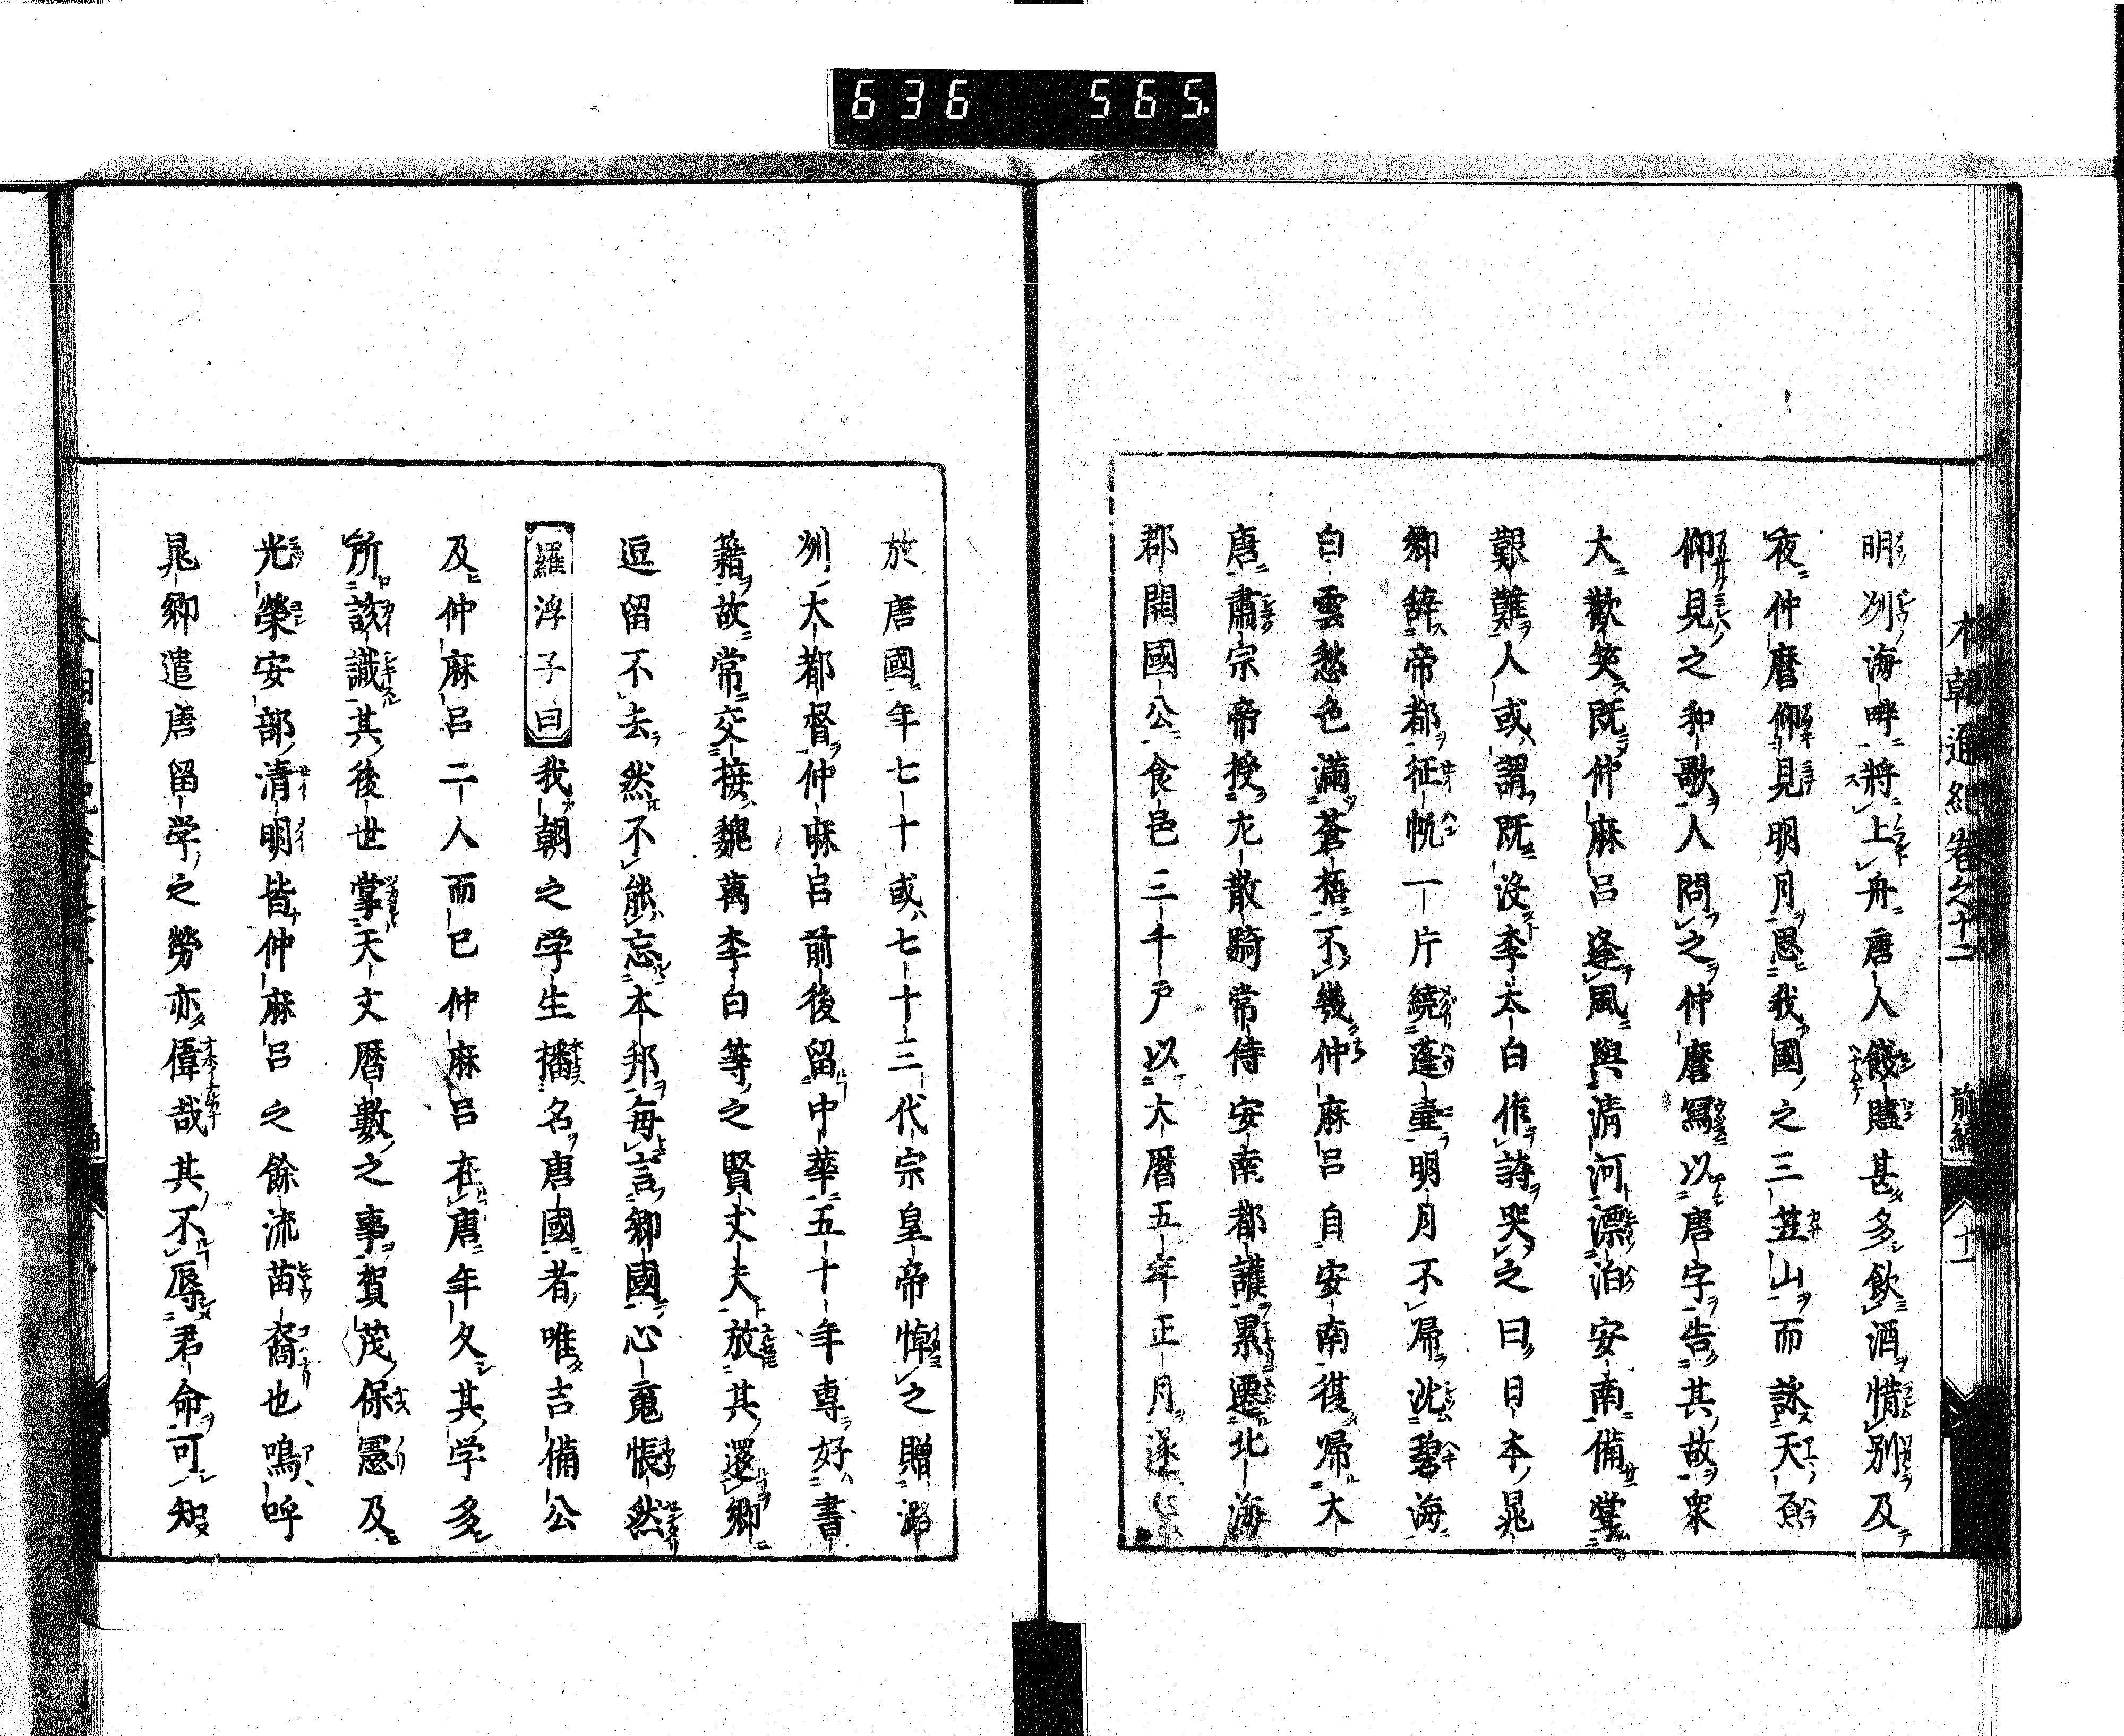 636 565
本朝通紀卷之十二 前編 十一
明州海畔將上舟唐人餞贐甚多飲酒惜別及
夜仲麿仰見明月思我國之三笠山而詠天原
仰見之和歌人問之仲麿寫以唐字告其故衆
大歡笑既仲麻呂逢風與清河漂泊安南備嘗
艱難人或謂既没李太白作詩哭之曰日本晁
卿辞帝都征帆一片繞蓬壷明月不歸沈碧海
白雲愁色滿蒼梧不幾仲麻呂自安南復歸大
唐肅宗帝授尢散騎常侍安南都護累遷北海
郡開國公食邑三千戸以大暦五年正月遂
放唐國年七十或七十三代宗皇帝悼之贈潞
州大都督仲麻呂前後留中華五十年専好書
籍故常交接魏萬李白等之賢丈夫放其還郷
逗留不去然不能忘本邦毎言郷國心竟悵然
羅浮子曰我朝之学生播名唐國者唯吉備公
及仲麻呂二人而已仲麻呂在唐年久其学多
所該識其後世掌天文暦數之事賀茂保憲及
光榮安部清明皆仲麻呂之餘流苗裔也鳴呼
晁卿遣唐留学之勞亦偉哉其不辱君命可知